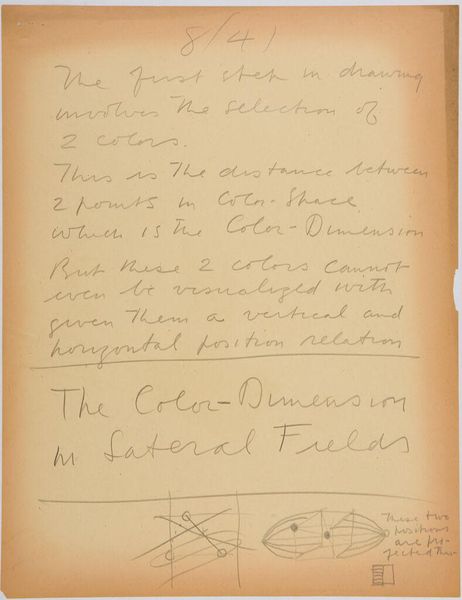 8/41
The first step in drawing
involves the selection of
2 colors.
This is the distance between
2 points in Color-Space
which is the Color-Dimension
But these 2 colors cannot
even be visualized with
given them a vertical and
horizontal position relation
The Color-Dimension
in Lateral Fields
These two
positions
are pro-
jected thus